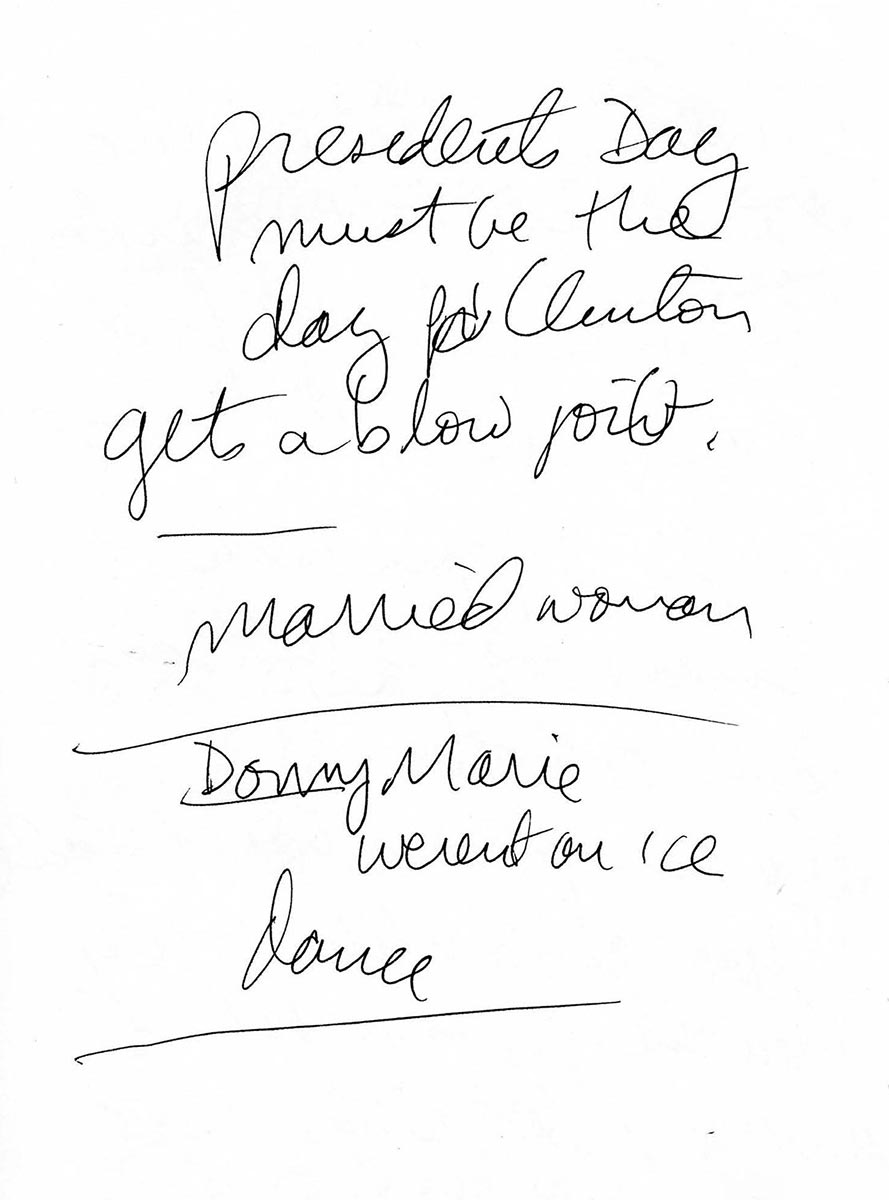 Presidents Day
must be the
day for Clinton
gets a blow joibt.
married woman
Donny Marie
werent on ice
dance